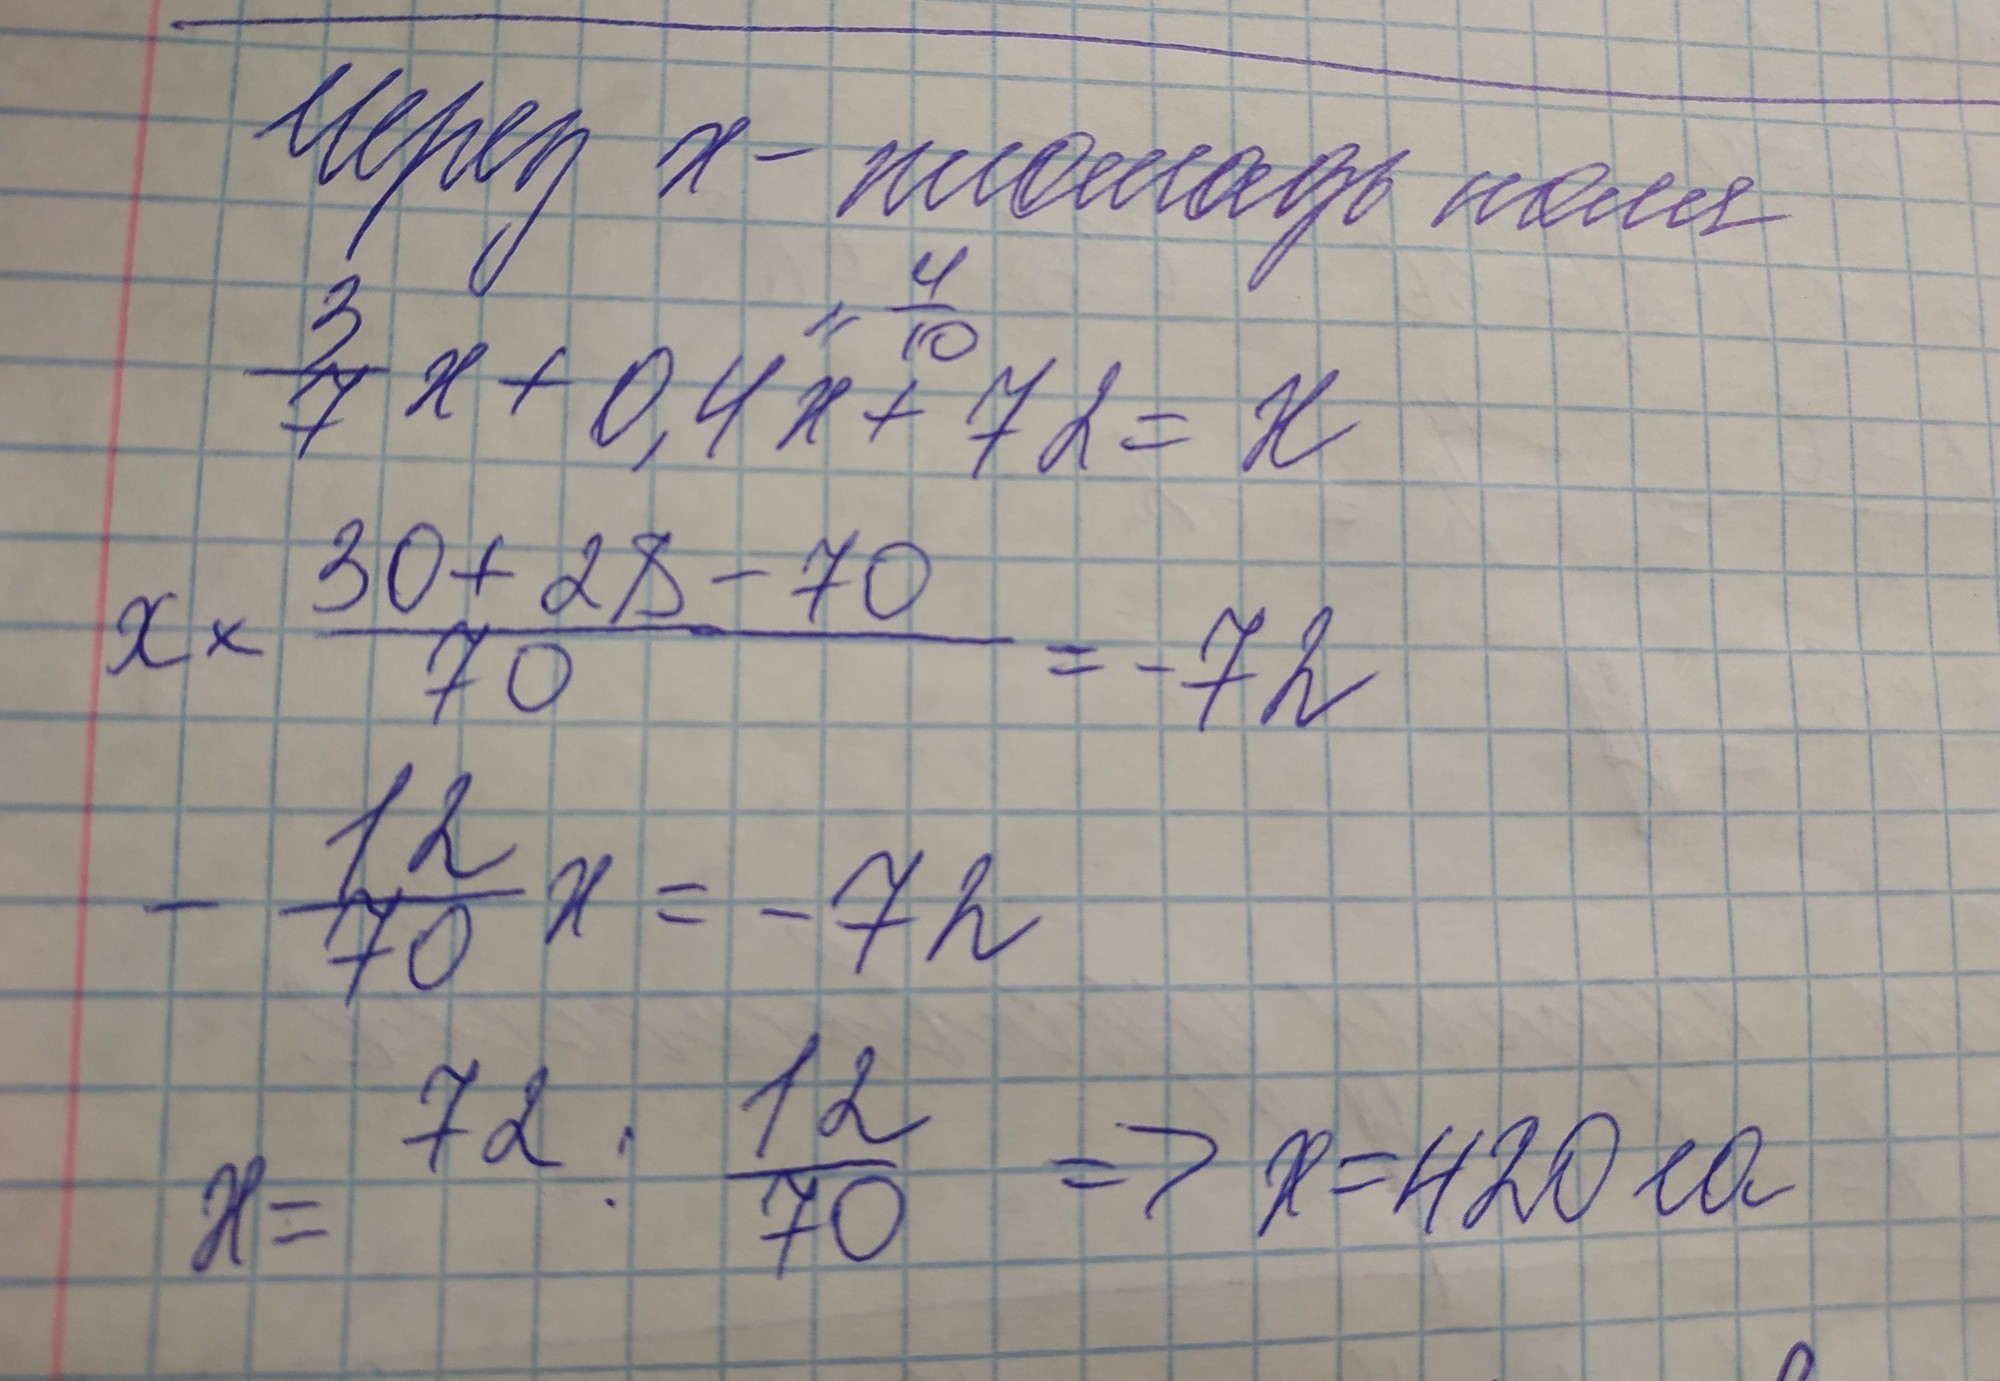 Через x - площадь поля
3/7 x + 0,4x + 72 = x
= 4/10
x × (30 + 28 - 70)/70 = -72
- 12/70 x = -72
x = 72 : 12/70 => x = 420 га